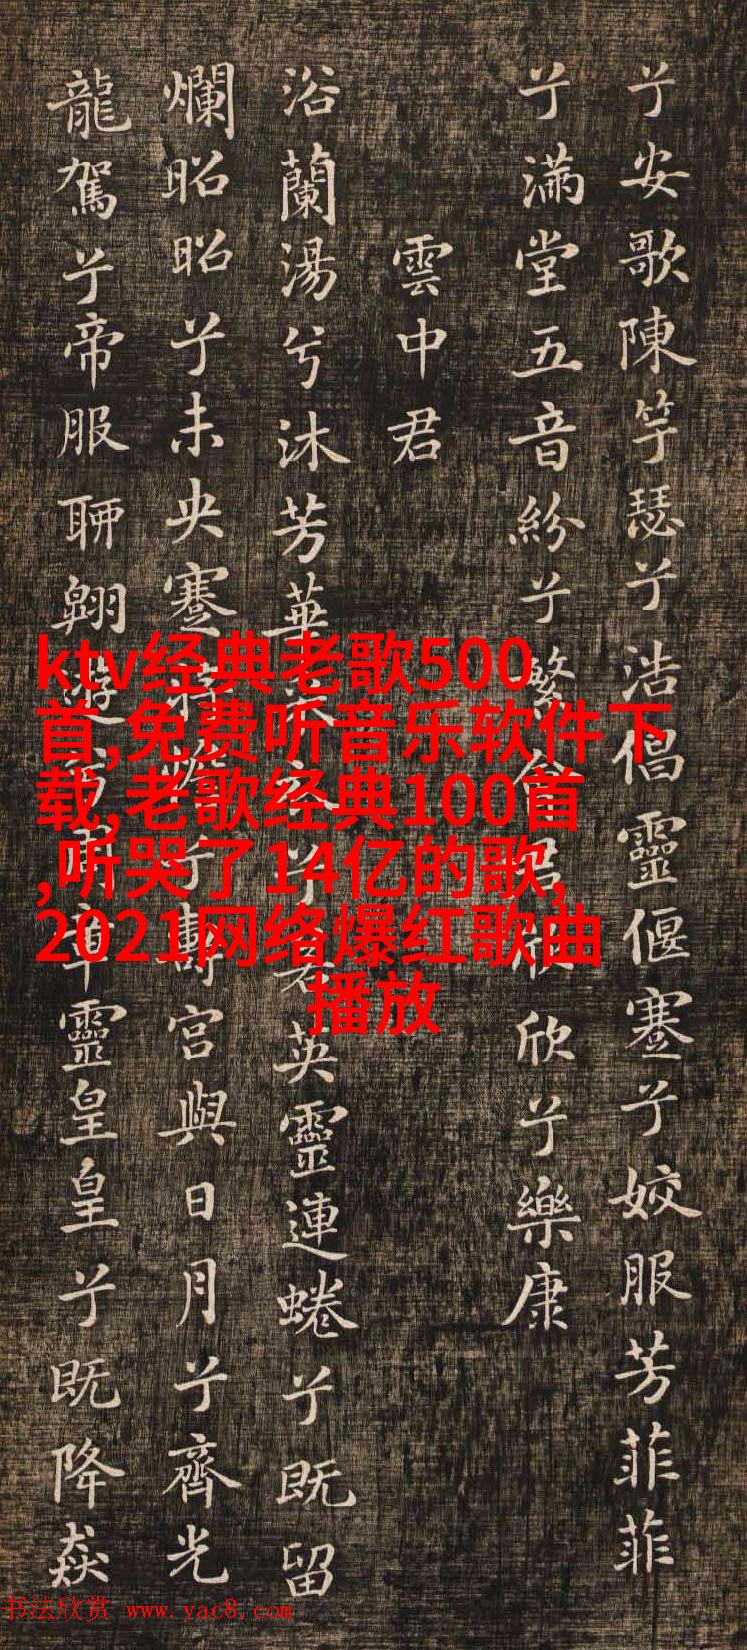 兮安歌陳竽瑟兮浩倡靈偃蹇兮姣服芳菲菲
兮滿堂五音紛兮繁會君欣欣兮樂康
雲中君
浴蘭湯兮沐芳華采衣兮若英靈連蜷兮既留
爛昭昭兮未央蹇將憺兮壽宮與日月兮齊光
龍駕兮帝服聊翱遊兮周章靈皇皇兮既降猋
ktv经典老歌500
首,免费听音乐软件下
载,老歌经典100首
,听哭了14亿的歌,
2021网络爆红歌曲
播放
书法欣赏 www.yac8.com